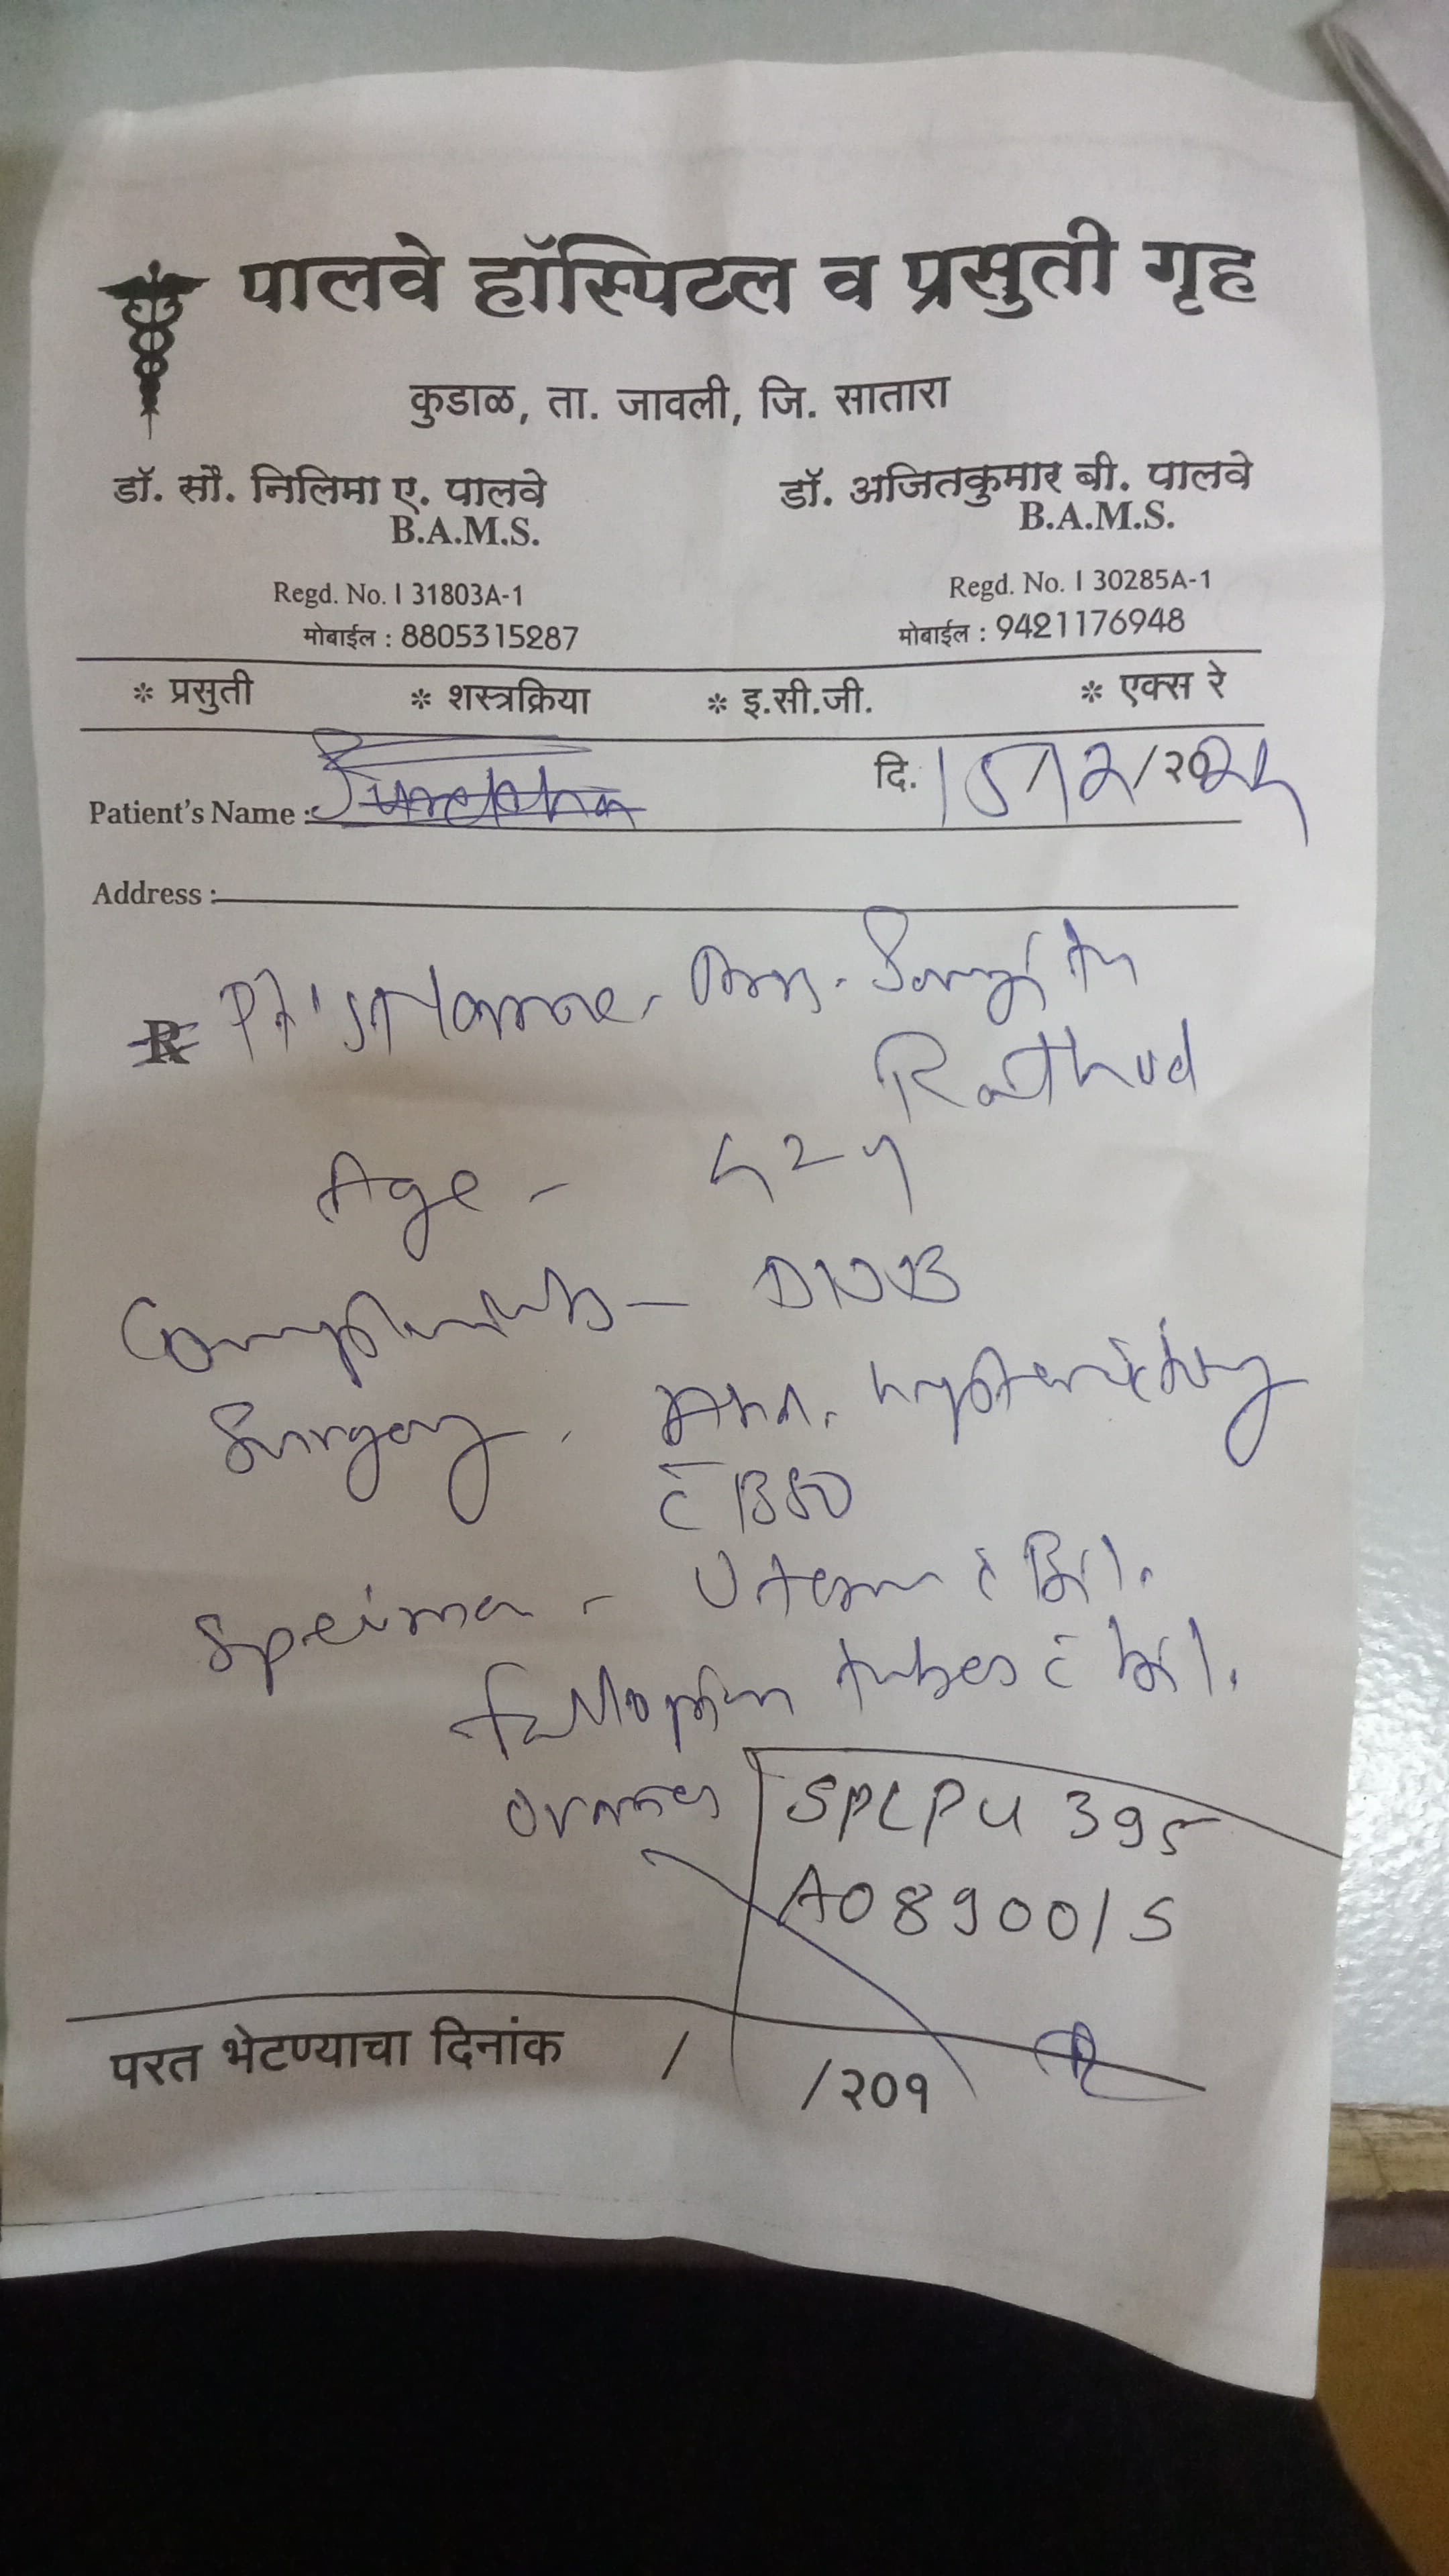 पालवे हॉस्पिटल व प्रसुती गृह
कुडाळ, ता. जावली, जि. सातारा
डॉ. सौ. निलिमा ए. पालवे
B.A.M.S.
Regd. No. I 31803A-1
मोबाईल : 8805315287
डॉ. अजितकुमार बी. पालवे
B.A.M.S.
Regd. No. I 30285A-1
मोबाईल : 9421176948
* प्रसुती * शस्त्रक्रिया * इ.सी.जी. * एक्स रे
Patient's Name : दि. 15/12/२०24
Address :
R Pt's Name - Mrs. Sangita
Rathod
Age - 42y
Complaints - DUB
Surgery - Abd. hysterectomy
c̄ BSO
Specimen - Uterus c̄ Bil.
fallopian tubes c̄ bil.
ovaries
SPLPU 395
A0890015
परत भेटण्याचा दिनांक / /२०१